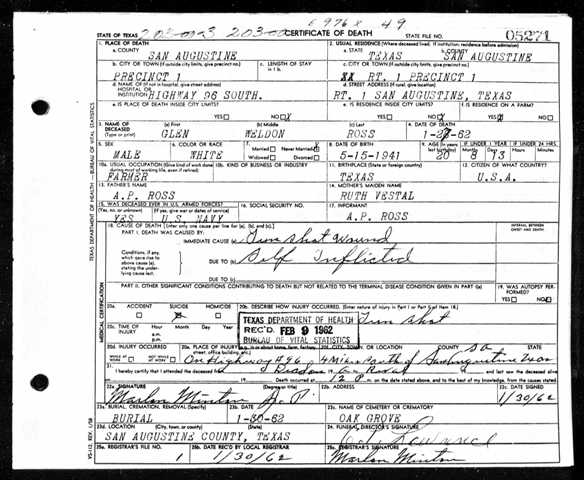 976x 49
STATE OF TEXAS CERTIFICATE OF DEATH STATE FILE NO. 05271
1. PLACE OF DEATH 2. USUAL RESIDENCE (Where deceased lived. If institution: residence before admission)
a. COUNTY SAN AUGUSTINE a. STATE TEXAS b. COUNTY SAN AUGUSTINE
b. CITY OR TOWN (If outside city limits, give precinct no.) c. LENGTH OF STAY c. CITY OR TOWN (If outside city limits, give precinct no.)
PRECINCT 1 XX RT. 1 PRECINCT 1
d. NAME OF (If not in hospital, give street address) d. STREET ADDRESS (If rural, give location)
HOSPITAL OR
INSTITUTION HIGHWAY 96 SOUTH. RT. SAN AUGUSTINE, TEXAS
e. IS PLACE OF DEATH INSIDE CITY LIMITS? e. IS RESIDENCE INSIDE CITY LIMITS? f. IS RESIDENCE ON A FARM?
YES NO X YES NO X YES X NO
3. NAME OF DECEASED (a) First (b) Middle (c) Last 4. DATE OF DEATH
(Type or print) GLEN WELDON ROSS 1-27-62
5. SEX 6. COLOR OR RACE 7. Married Never Married X 8. DATE OF BIRTH 9. AGE IF UNDER 1 YEAR IF UNDER 24 HRS.
MALE WHITE Widowed Divorced 5-15-1941 20 8 13
10a. USUAL OCCUPATION (Give kind of work done during most of working life, even if retired) 10b. KIND OF BUSINESS OR INDUSTRY 11. BIRTHPLACE (State or foreign country) 12. CITIZEN OF WHAT COUNTRY?
FARMER TEXAS U.S.A.
13. FATHER'S NAME 14. MOTHER'S MAIDEN NAME
A.P. ROSS RUTH VESTAL
15. WAS DECEASED EVER IN U.S. ARMED FORCES? 16. SOCIAL SECURITY NO. 17. INFORMANT
(Yes, no, or unknown) (If yes, give war or dates of service)
YES U.S. NAVY A.P. ROSS
18. CAUSE OF DEATH [Enter only one cause per line for (a), (b), and (c).] INTERVAL BETWEEN ONSET AND DEATH
PART I. DEATH WAS CAUSED BY:
IMMEDIATE CAUSE (a) Gun Shot Wound
Conditions, if any, which gave rise to above cause (a), stating the underlying cause last.
DUE TO (b) Self Inflicted
DUE TO (c)
PART II. OTHER SIGNIFICANT CONDITIONS CONTRIBUTING TO DEATH BUT NOT RELATED TO THE TERMINAL DISEASE CONDITION GIVEN IN PART I (a) 19. WAS AUTOPSY PERFORMED?
YES NO
20a. ACCIDENT SUICIDE HOMICIDE 20b. DESCRIBE HOW INJURY OCCURRED. (Enter nature of injury in Part I or Part II of item 18.)
TEXAS DEPARTMENT OF HEALTH
REC'D FEB 9 1962
BUREAU OF VITAL STATISTICS
Gun Shot
20c. TIME OF INJURY Hour Month Day Year
a.m.
p.m.
20d. INJURY OCCURRED
WHILE AT WORK NOT WHILE AT WORK
On Highway #96 4 Miles South of San Augustine
21. I hereby certify that I attended the deceased
Death occurred at 12 P. m. on the date stated above, and to the best of my knowledge, from the causes stated.
22a. SIGNATURE (Degree or title) 22b. ADDRESS 22c. DATE SIGNED
Marlon Minton J.P. 1/30/62
23a. BURIAL, CREMATION, REMOVAL (Specify) 23b. DATE 23c. NAME OF CEMETERY OR CREMATORY
BURIAL 1-30-62 OAK GROVE
23d. LOCATION (City, town, or county) (State) 24. FUNERAL DIRECTOR'S SIGNATURE
SAN AUGUSTINE COUNTY, TEXAS
25a. REGISTRAR'S FILE NO. 25b. DATE REC'D BY LOCAL REGISTRAR 25c. REGISTRAR'S SIGNATURE
1 1/30/62 Marlon Minton
TEXAS DEPARTMENT OF HEALTH — BUREAU OF VITAL STATISTICS
MEDICAL CERTIFICATION